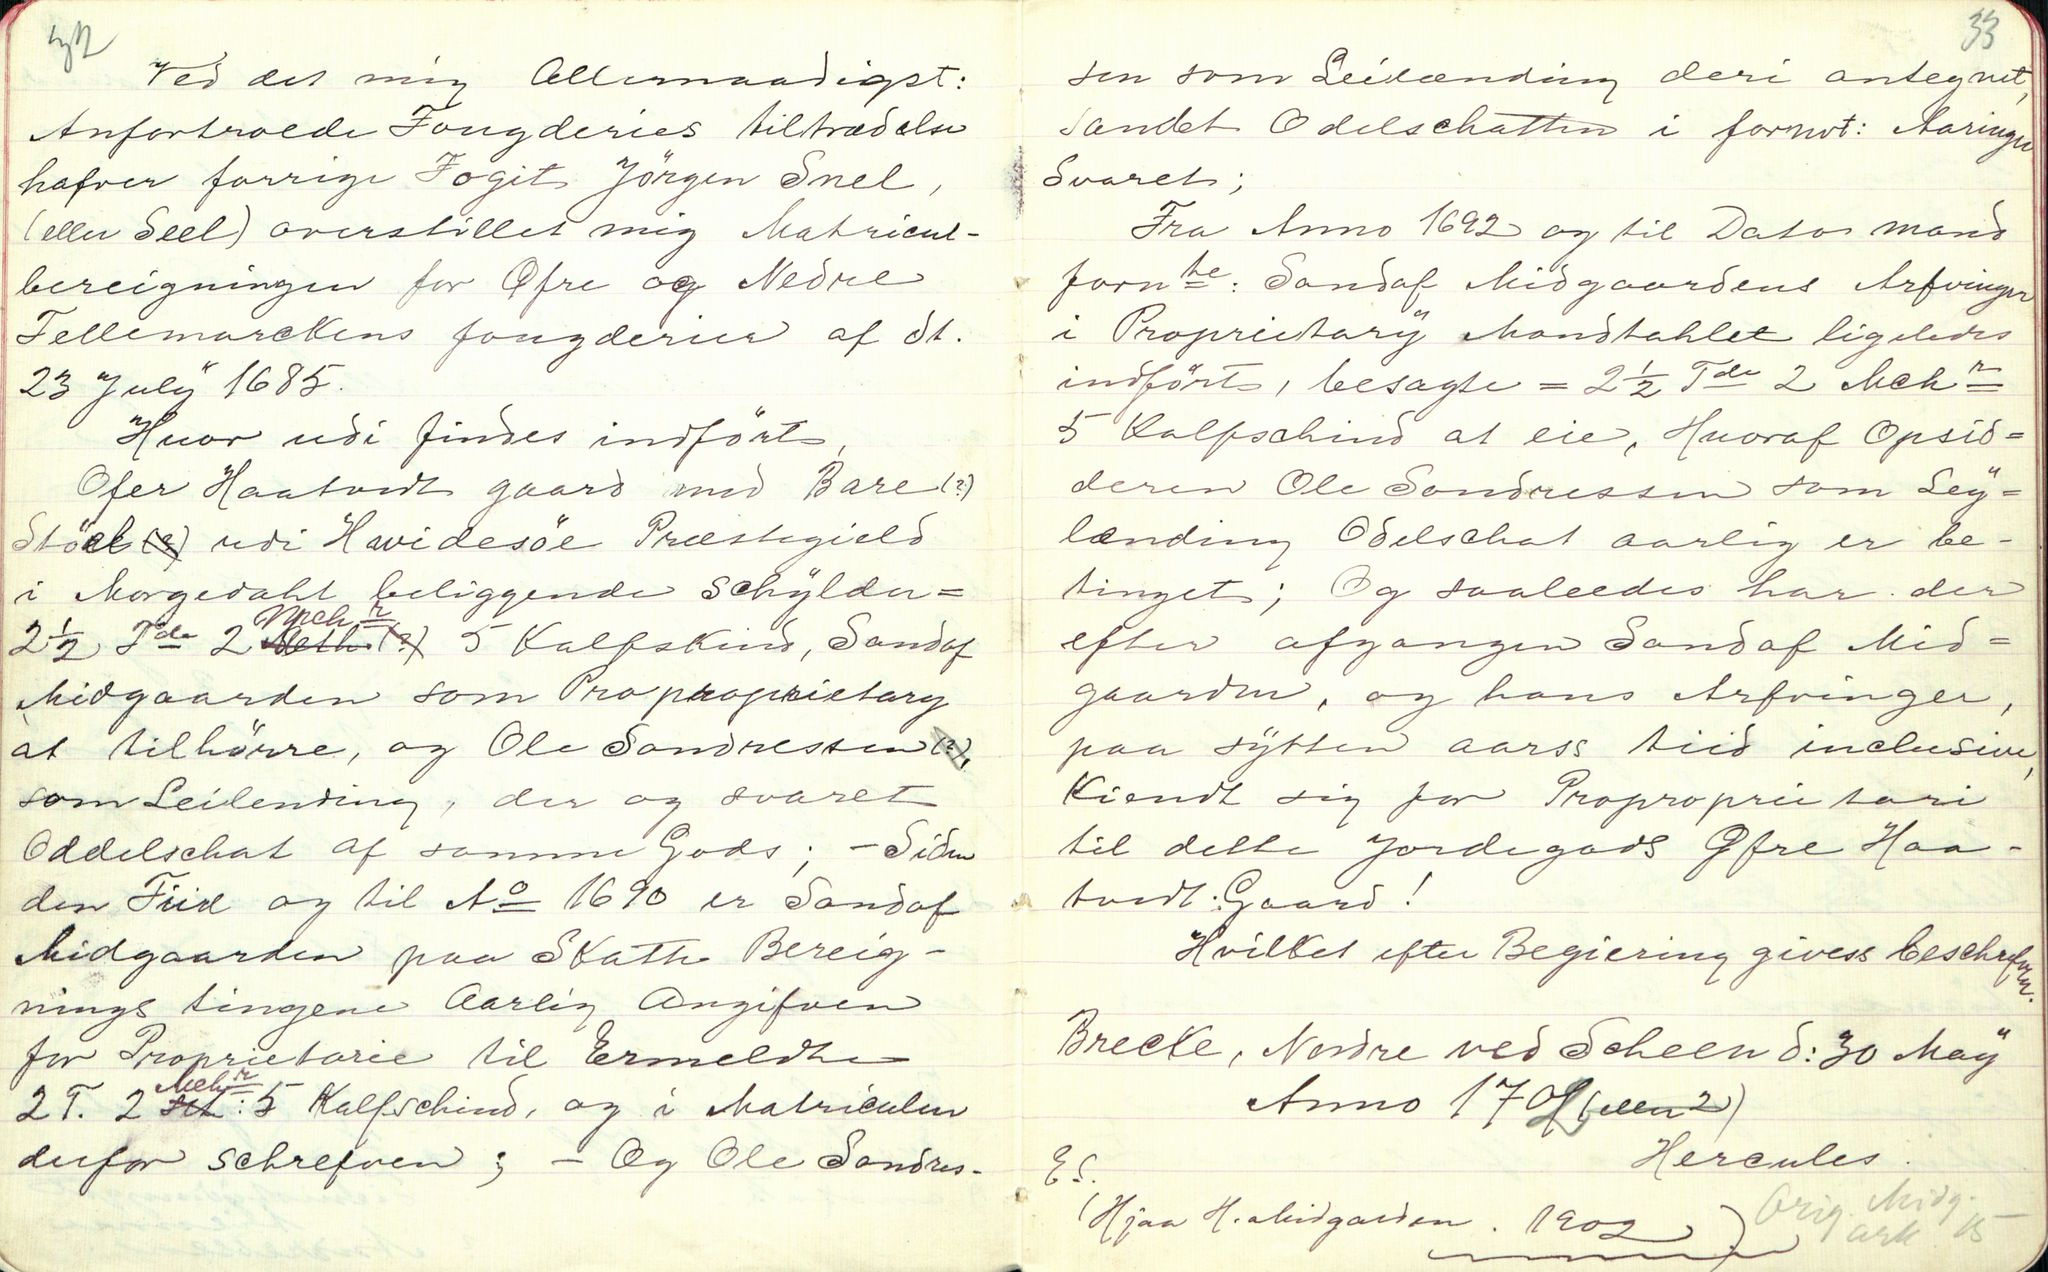 32
Ved det mig Allernaadigst:
Anfortroede Fougderies tiltrædelse
hafver forrige Fogit Jörgen Snel,
(eller Seel) overstillet mig Matricul-
bereigningen for Øfre og Nedre
Tellemarckens fougderier af dt.
23 Julÿ 1685.
Huor udi findes indfört,
Ofer Haatvedt gaard med Bare (?)
Stöel (?) udi Hvidesöe Præstegield
i Morgedahl beliggende schÿlder=
2½ Tde 2 Mchr 5 Kalfskind, Sandof
Midgaarden som Proproprietary
at tilhörre, og Ole Sondressen (?),
som Leilending, der og svaret
Oddelschat af samme Gods; - Siden
den Tiid og til Ao 1690 er Sandof
Midgaarden paa Skatte Bereig-
nings tingene Aarlig Angifven
for Proprietarie til Ermeldte
2 T. 2 Mchr: 5 Kalfschind, og i Matriculen
derfor schrefven; - Og Ole Sondres-
33
sen som Leilænding deri antegnet,
samt Odelschatten i fornvt: Aaringer
Svaret;
Fra Anno 1692 og til Dato mand
fornte: Sandof Midgaardens Arfvinger
i Proprietarÿ Mandtahlet ligeledes
indfört, besagte = 2½ Tde 2 Mchr
5 Kalfschind at eie, Huoraf Opsid=
deren Ole Sondressen som Leÿ=
lænding Odelschat aarlig er be-
tinget; Og saaleedes har der
efter afgangen Sandof Mid=
gaarden, og hans Arfvinger,
paa sÿtten aarss tiid inclusive,
Kiendt sig for Proproprietari
til dette Jordegods Øfre Haa-
tvedt: Gaard!
Hvilket efter Begiering givess beschrefven.
Brecke, Nordre ved Scheen d: 30 Maÿ
Anno 1702 (eller 2)
Hercules.
(Hjaa H. Midgarden. 1902)
Orig. Midg.
ark. 15